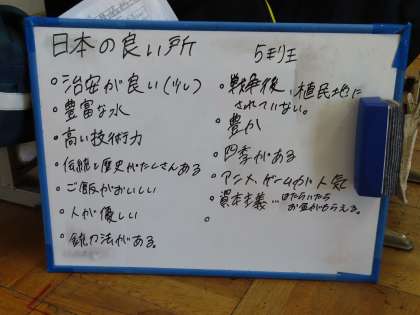 日本の良い所
5班
・治安が良い(少し)
・豊富な水
・高い技術力
・伝統と歴史がたくさんある
・ご飯がおいしい
・人が優しい
・銃刀法がある。
・戦争後、植民地に
されていない。
・豊か
・四季がある
・アニメ、ゲームが人気
・資本主義…はたらいたら
お金がもらえる。
・